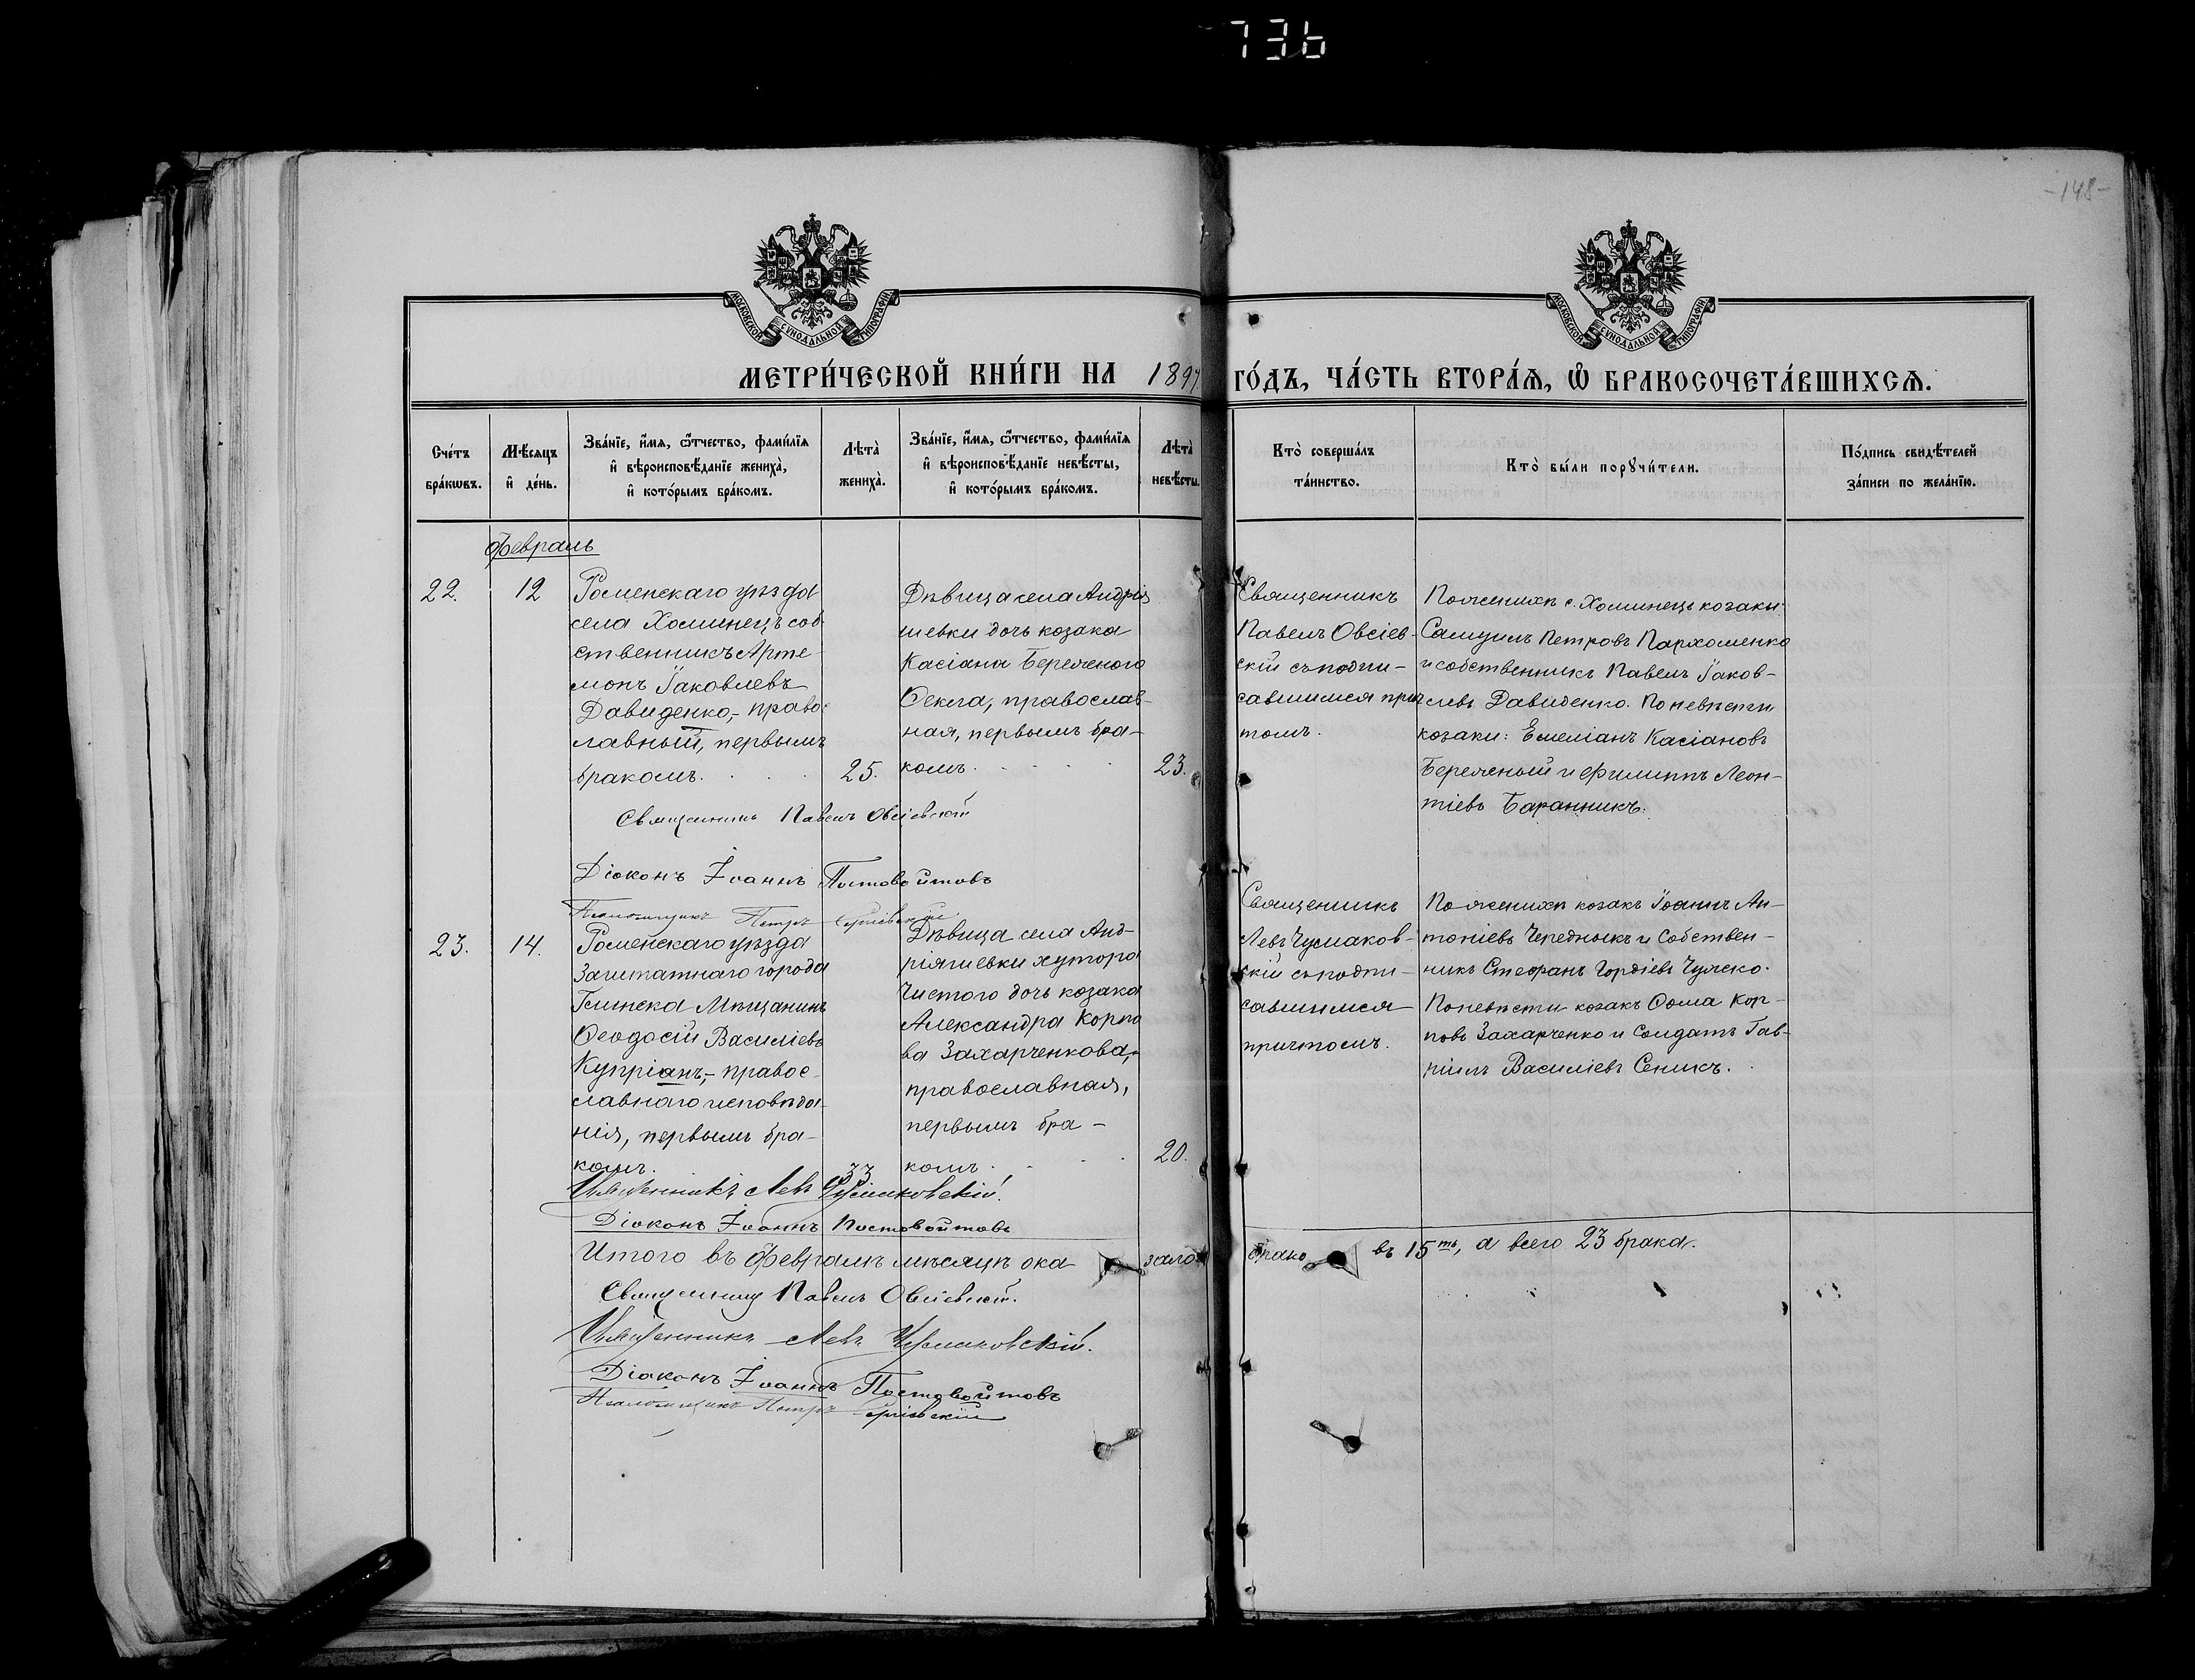 736
-148-
МОСКОВСКОЙ СУНОДАЛЬНОЙ ТИПОГРАФІИ
МОСКОВСКОЙ СУНОДАЛЬНОЙ ТИПОГРАФІИ
МЕТРИ́ЧЕСКОЙ КНИ́ГИ НА 1897 ГО́ДЪ, ЧА́СТЬ ВТОРА́Я, Ѡ҆ БРАКОСОЧЕТА́ВШИХСѦ.
Сче́тъ
бра́кѡвъ.
Мѣ́сѧцъ
и҆ де́нь.
Зва́нїе, и҆́мѧ, ѻ҆́тчество, фами́лїѧ
и҆ вѣроисповѣ́данїе жениха̀,
и҆ кото́рымъ бра́комъ.
Лѣта̀
жениха̀.
Зва́нїе, и҆́мѧ, ѻ҆́тчество, фами́лїѧ
и҆ вѣроисповѣ́данїе невѣ́сты,
и҆ кото́рымъ бра́комъ.
Лѣта̀
невѣ́сты.
Кто̀ соверша́лъ
та́инство.
Кто̀ бы́ли порꙋчи́тели.
По́дпись свидѣ́телей
за́писи по жела́нїю.
Февраль
22.
12
Роменскаго уѣзда
села Хоминецъ соб
ственникъ Арте-
монъ Іаковлевъ
Давиденко,- правос
лавный, первымъ
бракомъ. . . .
25.
Дѣвица села Андрія
шевки дочь козака
Касіана Береченого
Ѳекла, православ-
ная, первымъ бра-
комъ. . . . .
23.
Священникъ
Павелъ Овсіев-
скій съ подпи-
савшимся прич
томъ.
По женихѣ с. Хоминецъ козаки:
Самуилъ Петровъ Пархоменко
и собственникъ Павелъ Іаков-
левъ Давиденко. По невѣсти
козаки: Емеліанъ Касіановъ
Береченый и Филиппъ Леон-
тіевъ Баранникъ.
Священникъ Павелъ Овсіевскій
Діаконъ Іоаннъ Постовойтовъ
Псаломщикъ Петръ
23.
14.
Роменскаго уѣзда
Заштатнаго города
Глинска Мѣщанинъ
Ѳеодосій Василіевъ
Купріанъ,- правос-
славнаго исповѣда-
нія, первымъ бра-
комъ.
33
Дѣвица села Анд-
ріяшевки хутора
Чистого дочь козака
Александра Корпо
ва Захарченкова,-
православная,
первымъ бра-
комъ . . . .
20.
Священникъ
Левъ Чумаков-
скій съ подпи-
савшимся
причтомъ.
По женихѣ козакъ Іоаннъ Ан-
тоніевъ Чередныкъ и Собствен-
никъ Стефанъ Гордіевъ Чумско.
По невѣсти козакъ Ѳома Кор-
повъ Захарченко и Солдатъ Гав-
ріилъ Василіевъ Сеникъ.
Священникъ Левъ Чумаковскій.
Діаконъ Іоаннъ Постовойтовъ
Итого въ Февралѣ мѣсяцѣ ока зало брако въ 15ть, а всего 23 брака.
Священникъ Павелъ Овсіевскій.
Священникъ Левъ Чумаковскій.
Діаконъ Іоаннъ Постовойтовъ
Псаломщикъ Петръ